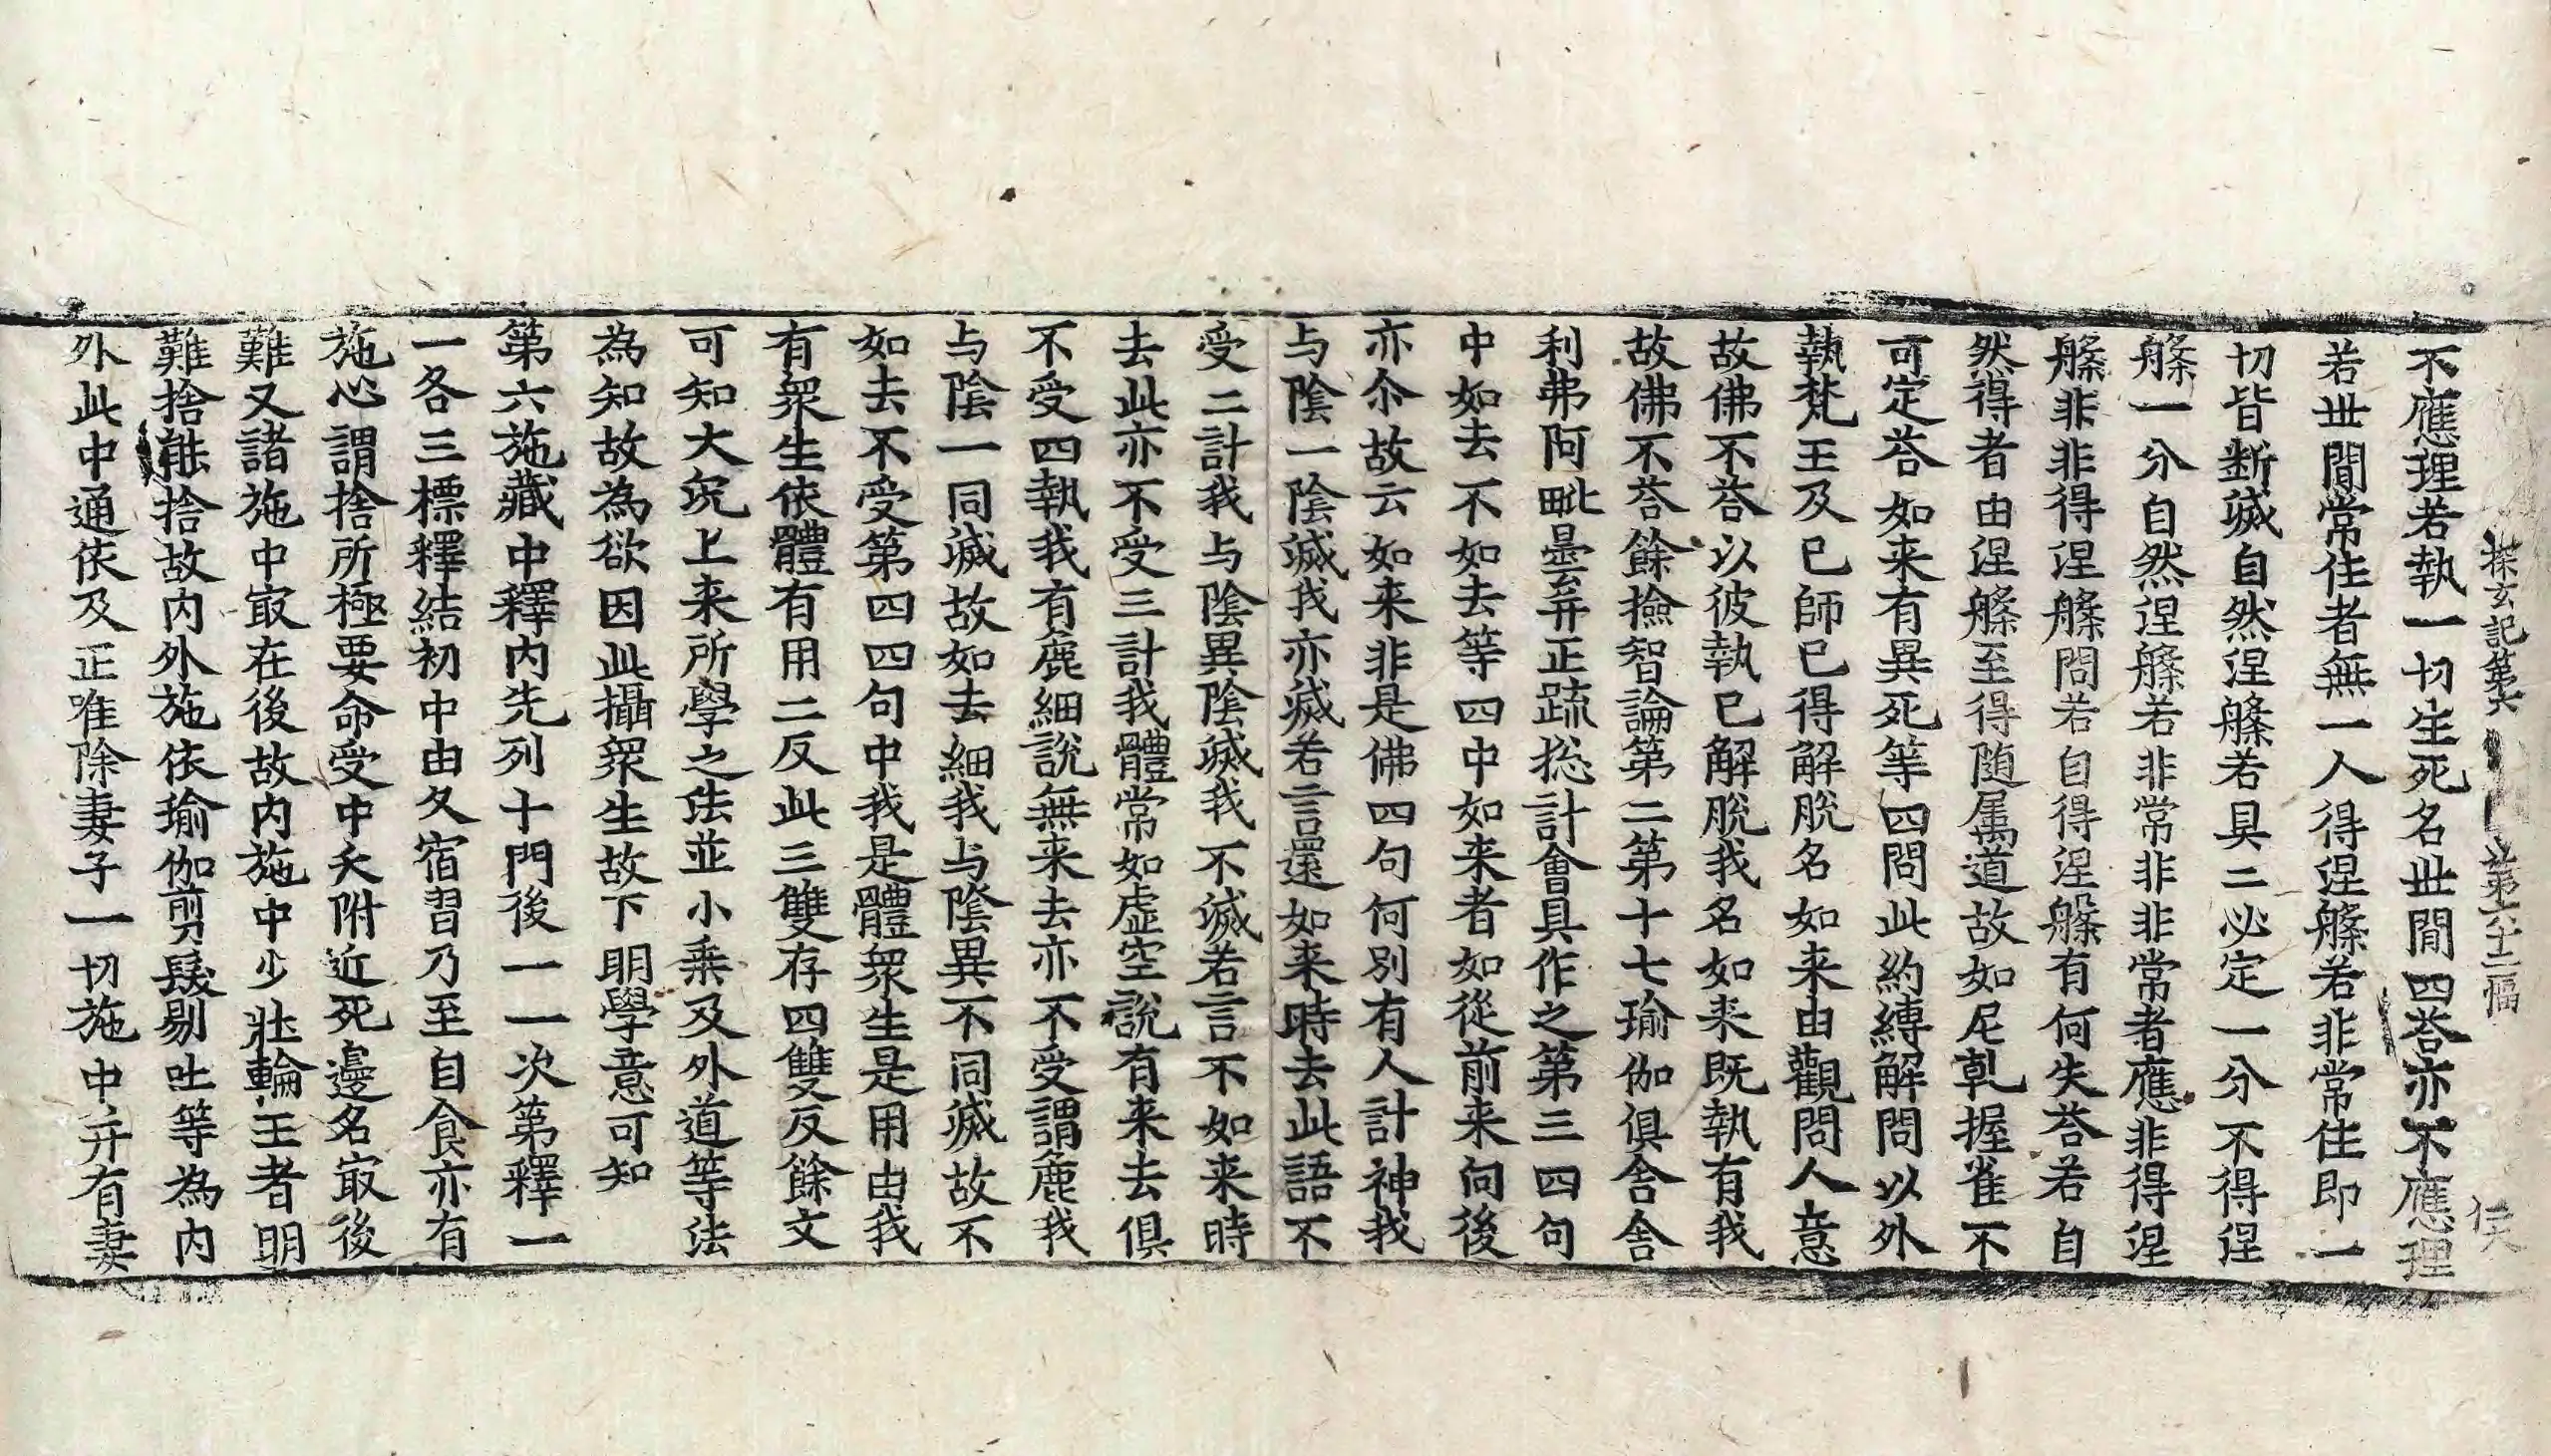 探玄記第六 第六十二幅 俟
不應理若執一切生死名世間四荅亦不應理
若世間常住者無一人得涅槃若非常住即一
切皆断滅自然涅槃若具二必定一分不得涅
槃一分自然涅槃若非常非非常者應非得涅
槃非非得涅槃問若自得涅槃有何失荅若自
然得者由涅槃至得随属道故如尼乹握雀不
可定荅如来有異死等四問此約縛解問以外
執梵王及已師已得解脱名如来由觀問人意
故佛不荅以彼執已解脱我名如来既執有我
故佛不荅餘撿智論第二第十七瑜伽俱舍舍
利弗阿毗曇弃正䟽捴計會具作之第三四句
中如去不如去等四中如来者如從前来向後
亦尒故云如来非是佛四句何別有人計神我
与陰一陰滅我亦滅若言還如来時去此語不
受二計我与陰異陰滅我不滅若言不如来時
去此亦不受三計我體常如虛空說有来去俱
不受四執我有麁細說無来去亦不受謂麁我
与陰一同滅故如去細我与陰異不同滅故不
如去不受第四四句中我是體衆生是用由我
有衆生依體有用二反此三雙存四雙反餘文
可知大况上来所學之法並小乘及外道等法
為知故為欲因此攝衆生故下明學意可知
第六施藏中釋内先列十門後一一次第釋一
一各三標釋結初中由久宿習乃至自食亦有
施心謂捨所極要命受中夭附近死邊名㝡後
難又諸施中㝡在後故内施中少壯輪王者明
難捨能捨故内外施依瑜伽剪髮剔吐等為内
外此中通依及正唯除妻子一切施中并有妻